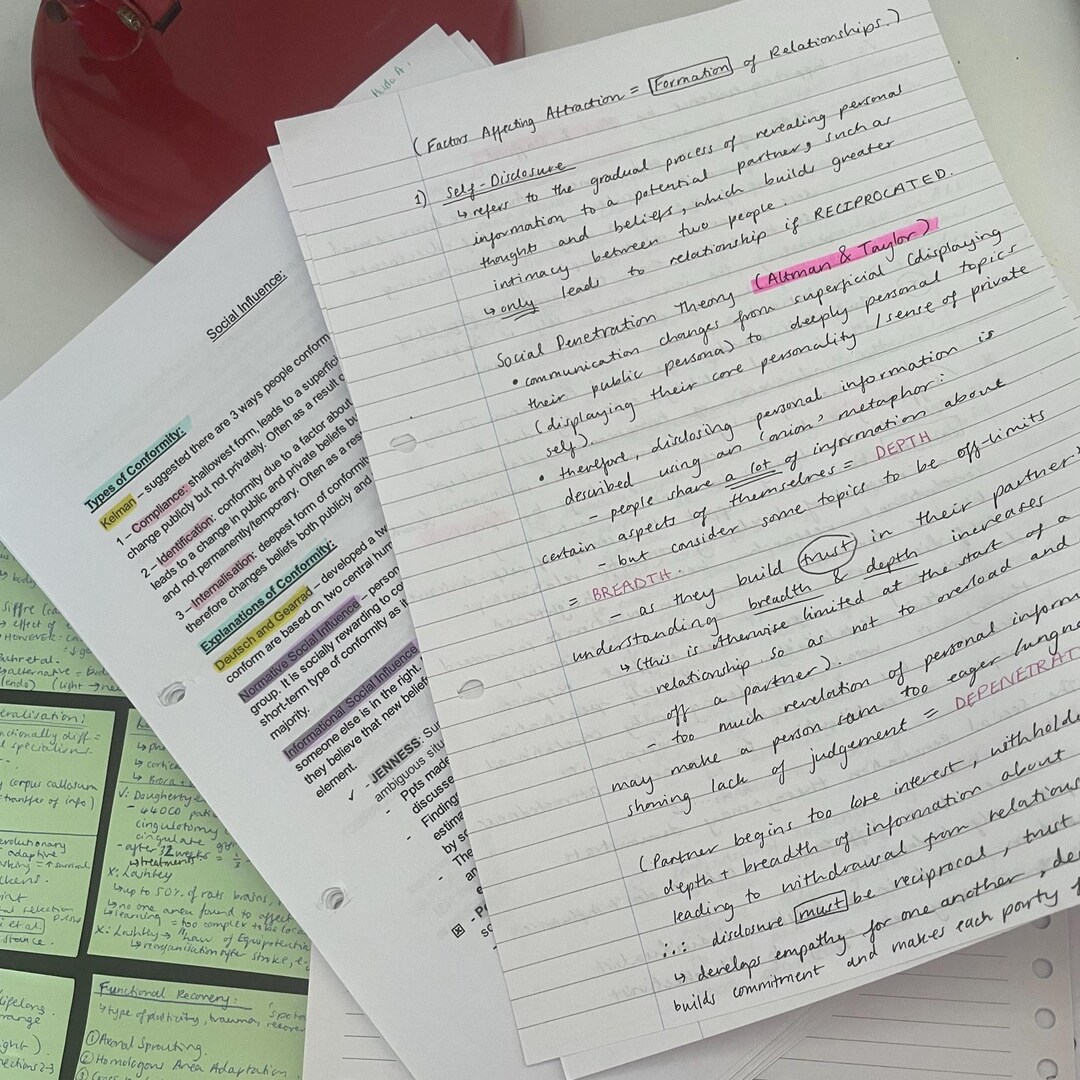 Aido A.
(Factors Affecting Attraction = Formation of Relationships.)
1) Self-Disclosure
↳ refers to the gradual process of revealing personal
information to a potential partner, such as
thoughts and beliefs, which builds greater
intimacy between two people.
↳ only leads to relationship if RECIPROCATED.
Social Penetration Theory (Altman & Taylor)
• communication changes from superficial (displaying
their public persona) to deeply personal topics
(displaying their core personality / sense of private
self).
• therefore, disclosing personal information is
described using an 'onion' metaphor:
- people share a lot of information about
certain aspects of themselves = DEPTH
- but consider some topics to be off-limits
= BREADTH.
- as they build trust in their partner
understanding breadth & depth increases
↳ (this is otherwise limited at the start of a
relationship so as not to overload and
off a partner).
- too much revelation of personal inform
may make a person seem too eager / ungra
showing lack of judgement = DEPENETRAT
(Partner begins too lose interest, withholds
depth + breadth of information about
leading to withdrawal from relations
∴ disclosure must be reciprocal, trust
↳ develops empathy for one another, de
builds commitment and makes each party f
Social Influence:
Types of Conformity:
Kelman – suggested there are 3 ways people conform
1 – Compliance: shallowest form, leads to a superfici
change publicly but not privately. Often as a result o
2 – Identification: conformity due to a factor about
leads to a change in public and private beliefs bu
and not permanently/temporary. Often as a res
3 – Internalisation: deepest form of conformity
therefore changes beliefs both publicly and
Explanations of Conformity:
Deutsch and Gearrad – developed a tw
conform are based on two central hum
Normative Social Influence – person
group. It is socially rewarding to co
short-term type of conformity as it
majority.
Informational Social Influence
someone else is in the right.
they believe that new beliefs
element.
- JENNESS: Su
ambiguous situ
- Ppts made
discusse
- Finding
estima
by sc
- The
an
e
- P
sc
Siffre (ca
↳ effect of
↳ HOWEVER:
Buhr et al.
(endo) (light
eralisation:
nctionally diff =
l specialism.
corpus callosum
transfer of info)
volutionary
adaptive
ckens.
stance.
V: Dougherty e
- 44000 pat
cingulotomy
cingulate
- after 32 wks = 1/3
↳ treatment
X: Lashley
↳ up to 50% of rats brains,
↳ no one area found to affect
↳ learning = too complex to be loca
X: Lashley → 'law of Equipotentia
↳ reorganisation after stroke, e.
Functional Recovery:
↳ type of plasticity, trauma, recover
① Axonal Sprouting.
② Homologous Area Adaptation
ifelong.
range
ght).
nections 2-3